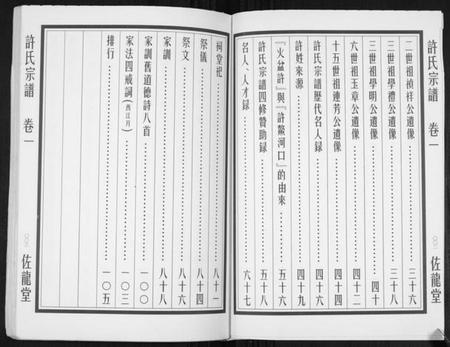 許氏宗譜 卷一
佐龍堂
二世祖禎祥公遺像 二十六
三世祖學禮公遺像 三十八
三世祖學明公遺像 四十
六世祖玉章公遺像 四十二
十五世祖連芳公遺像 四十四
許氏宗譜歷代名人録 四十六
許姓來源 四十九
『火盆許』與『許鰲河口』的由來 五十六
許氏宗譜四修贊助録 五十八
名人、人才録 六十七
祠堂祀 八十一
祭儀 八十四
祭文 八十六
家訓 八十八
家訓舊道德詩八首 一〇〇
家法四戒詞(西江月) 一〇三
排行 一〇五
許氏宗譜 卷一
佐龍堂